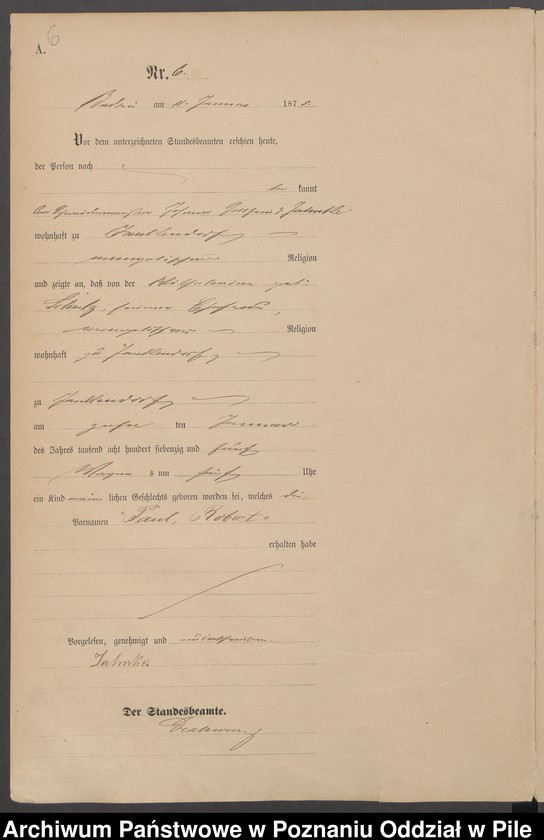 6
A.
Nr. 6.
am 11. Januar 1875.
Vor dem unterzeichneten Standesbeamten erschien heute,
der Person nach
be kannt
Der Johann Jahnke
wohnhaft zu Jankendorf
evangelischer Religion
und zeigte an, daß von der Wilhelmine geb.
seiner Ehefrau,
evangelischer Religion
wohnhaft zu Jankendorf
zu Jankendorf
am zehn ten Januar
des Jahres tausend acht hundert siebenzig und fünf
Morgen s um fünf Uhr
ein Kind männ lichen Geschlechts geboren worden sei, welches die
Vornamen "Paul, Robert"
erhalten habe
Vorgelesen, genehmigt und unterschrieben.
Jahnke.
Der Standesbeamte.
Archiwum Państwowe w Poznaniu Oddział w Pile